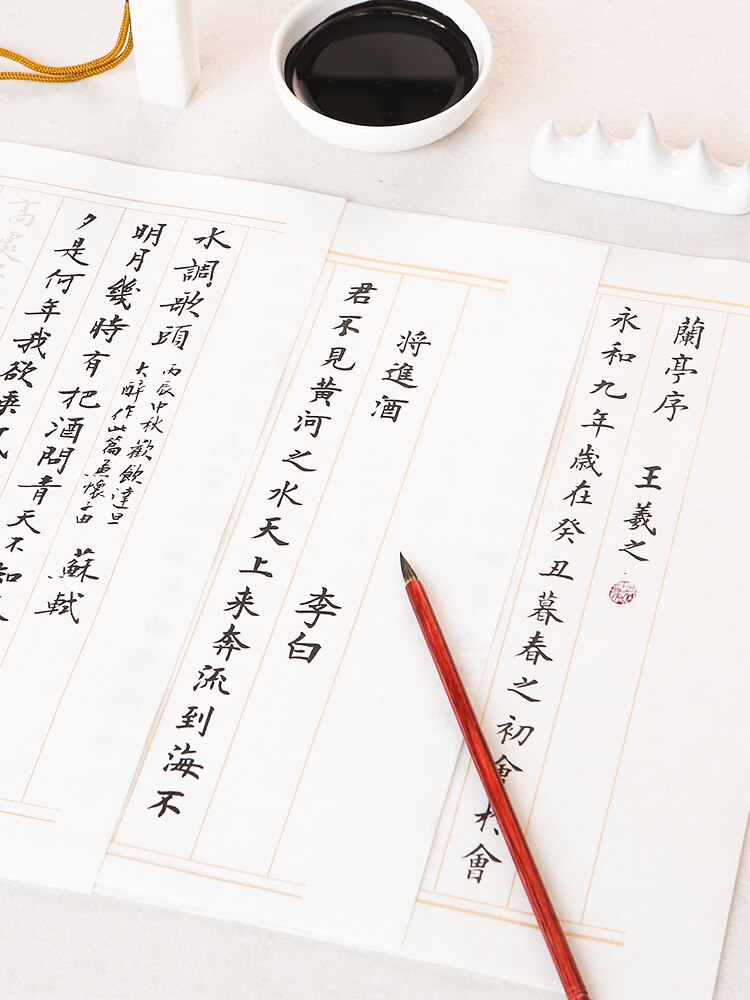 蘭亭序 王羲之
永和九年歳在癸丑暮春之初會扵會
将進酒 李白
君不見黄河之水天上来奔流到海不
水調歌頭
丙辰中秋歡飲達旦
大醉作此篇兼懷子由
蘇軾
明月幾時有把酒問青天不知
夕是何年我欲乘風
高處